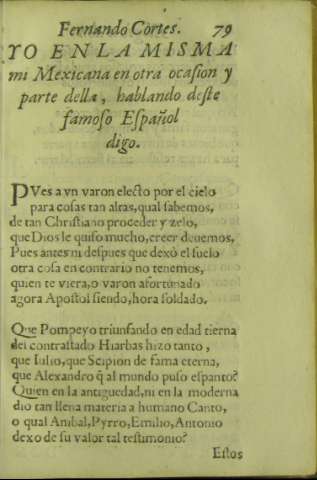 Fernando Cortes. 79
YO EN LA MISMA
mi Mexicana en otra ocasion y
parte della, hablando deste
famoso Español
digo.
PVes a vn varon electo por el cielo
para cosas tan altas, qual sabemos,
de tan Christiano proceder y zelo,
que Dios le quiso mucho, creer deuemos,
Pues antes ni despues que dexò el suelo
otra cosa en contrario no tenemos,
quien te viera, o varon afortunado
agora Apostol siendo, hora soldado.
Que Pompeyo triunfando en edad tierna
del contrastado Hiarbas hizo tanto,
que Iulio, que Scipion de fama eterna,
que Alexandro q̃ al mundo puso espanto?
Quien en la antiguedad, ni en la moderna
dio tan llena materia a humano Canto,
o qual Anibal, Pyrro, Emilio, Antonio
dexo de su valor tal testimonio?
Estos